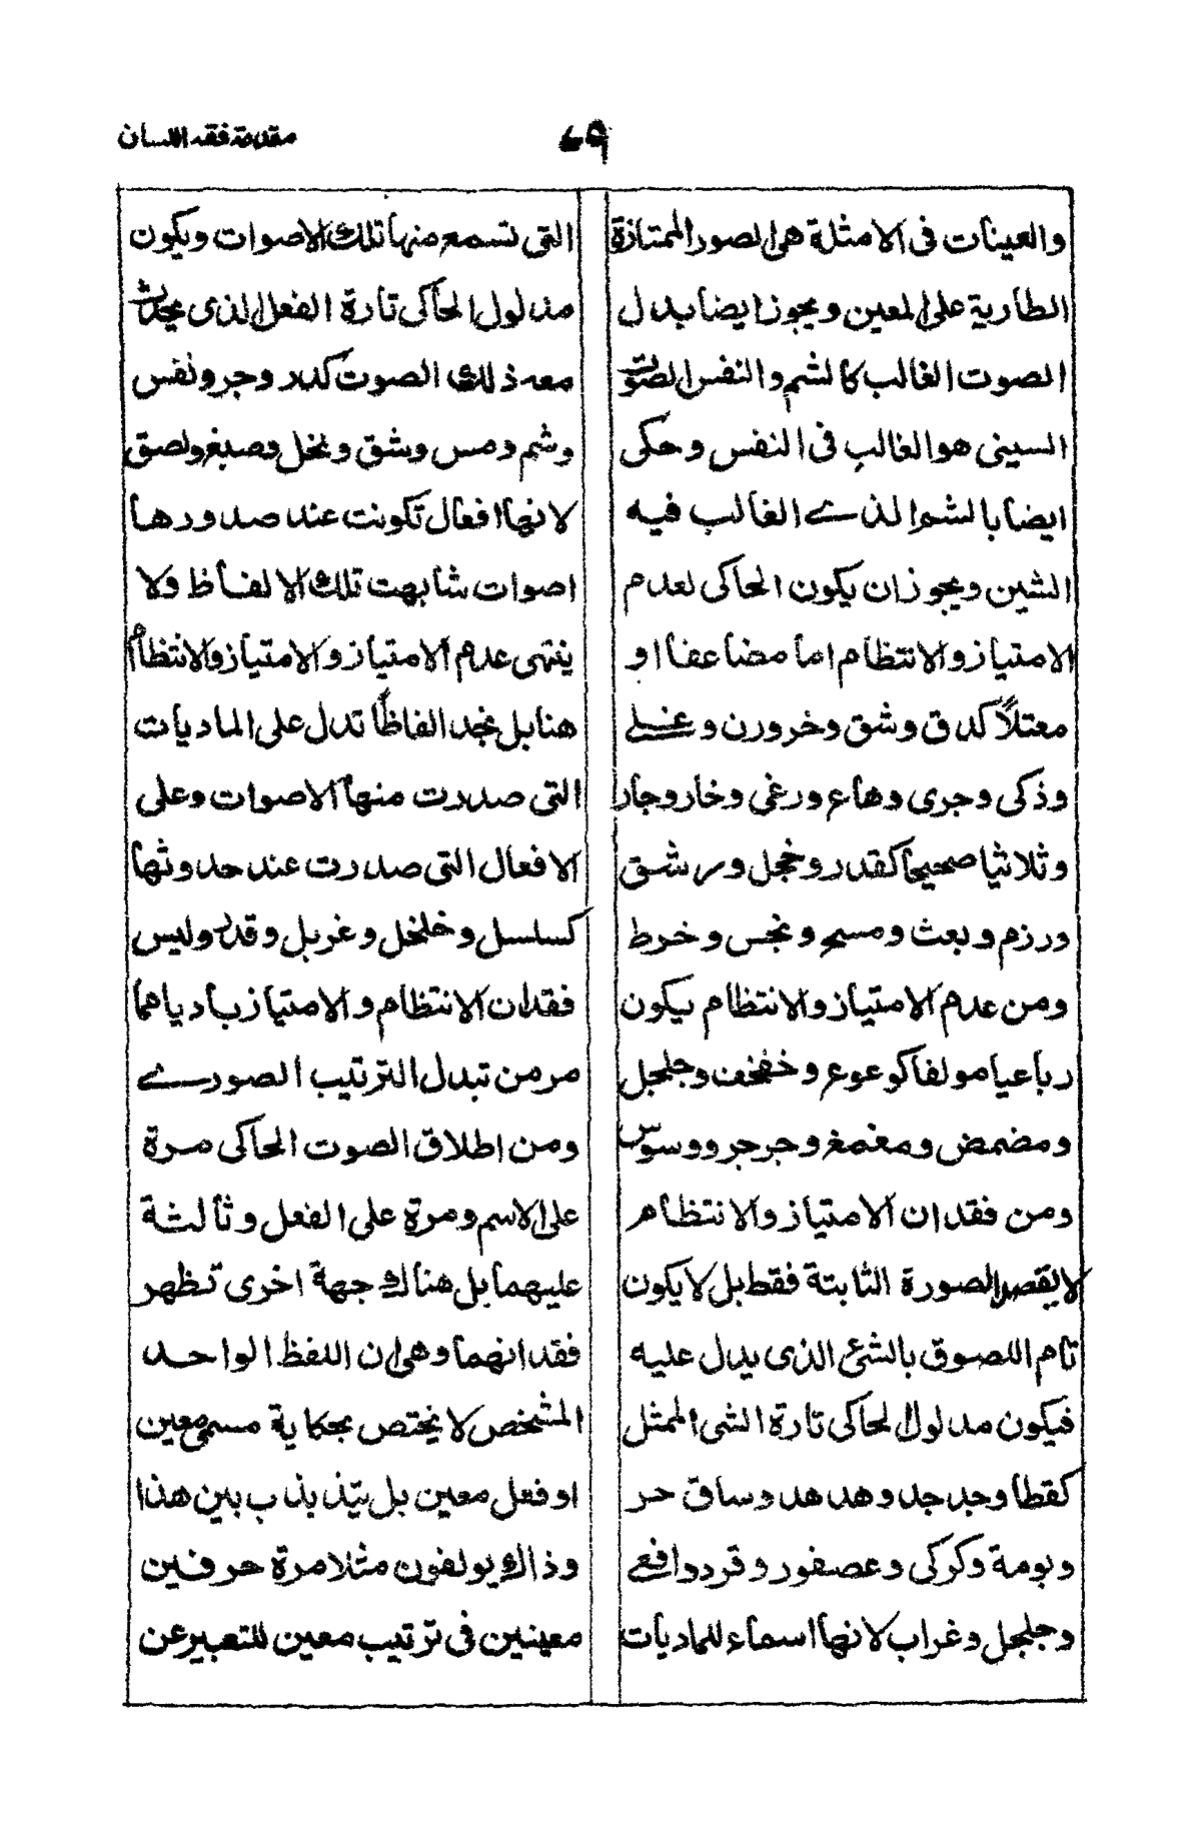 مقدمة فقه اللسان
٦٩
والعينات فى الامثلة هى الصور الممتازة
الطارية على المعين ويجوز ايضا بدل
الصوت الغالب كالشم والنفس الصوت
السينى هو الغالب فى النفس وحكى
ايضا بالشم الذے الغالب فيه
الشين ويجوز ان يكون الحاكى لعدم
الامتياز والانتظام اما مضاعفا او
معتلاً كدق وشق وخر ورن و
وذكى وجرى وهاع ورغى وخار وجار
وثلاثيا صحيحا كقدر وخجل ورشق
ورزم وبعث ومسح ونجس وخرط
ومن عدم الامتياز والانتظام يكون
رباعيا مولفا كوعوع وخفخف وجلجل
ومضمض ومغمغ وجرجر ووسوس
ومن فقدان الامتياز والانتظام
لا يقصد الصورة الثابتة فقط بل لا يكون
تام اللصوق بالشئ الذى يدل عليه
فيكون مدلول الحاكى تارة الشى الممثل
كقطا وجدجد وهدهد وساق حر
وبومة وكركى وعصفور وقرد وافعے
وجلجل وغراب لانها اسماء للماديات
التى تسمع منها تلك الاصوات ويكون
مدلول الحاكى تارة الفعل الذى يحدث
معه ذلك الصوت كدر وجر ونفس
وشم ومس وشق ونخل وصبغ ولصق
لانها افعال تكونت عند صدورها
اصوات شابهت تلك الالفاظ ولا
ينتهى عدم الامتياز والامتياز والانتظام
هنا بل نجد الفاظاً تدل على الماديات
التى صدرت منها الاصوات وعلى
الافعال التى صدرت عند حدوثها
كسلسل وخلخل وغربل وقدر وليس
فقدان الانتظام والامتياز باديا مما
مر من تبدل الترتيب الصورے
ومن اطلاق الصوت الحاكى مرة
على الاسم ومرة على الفعل وثالثة
عليهما بل هناك جهة اخرى تظهر
فقدانهما وهى ان اللفظ الواحد
المشخص لا يختص بحكاية مسمى معين
او فعل معين بل يتذبذب بين هذا
وذاك يولفون مثلا مرة حرفين
معينين فى ترتيب معين للتعبير عن